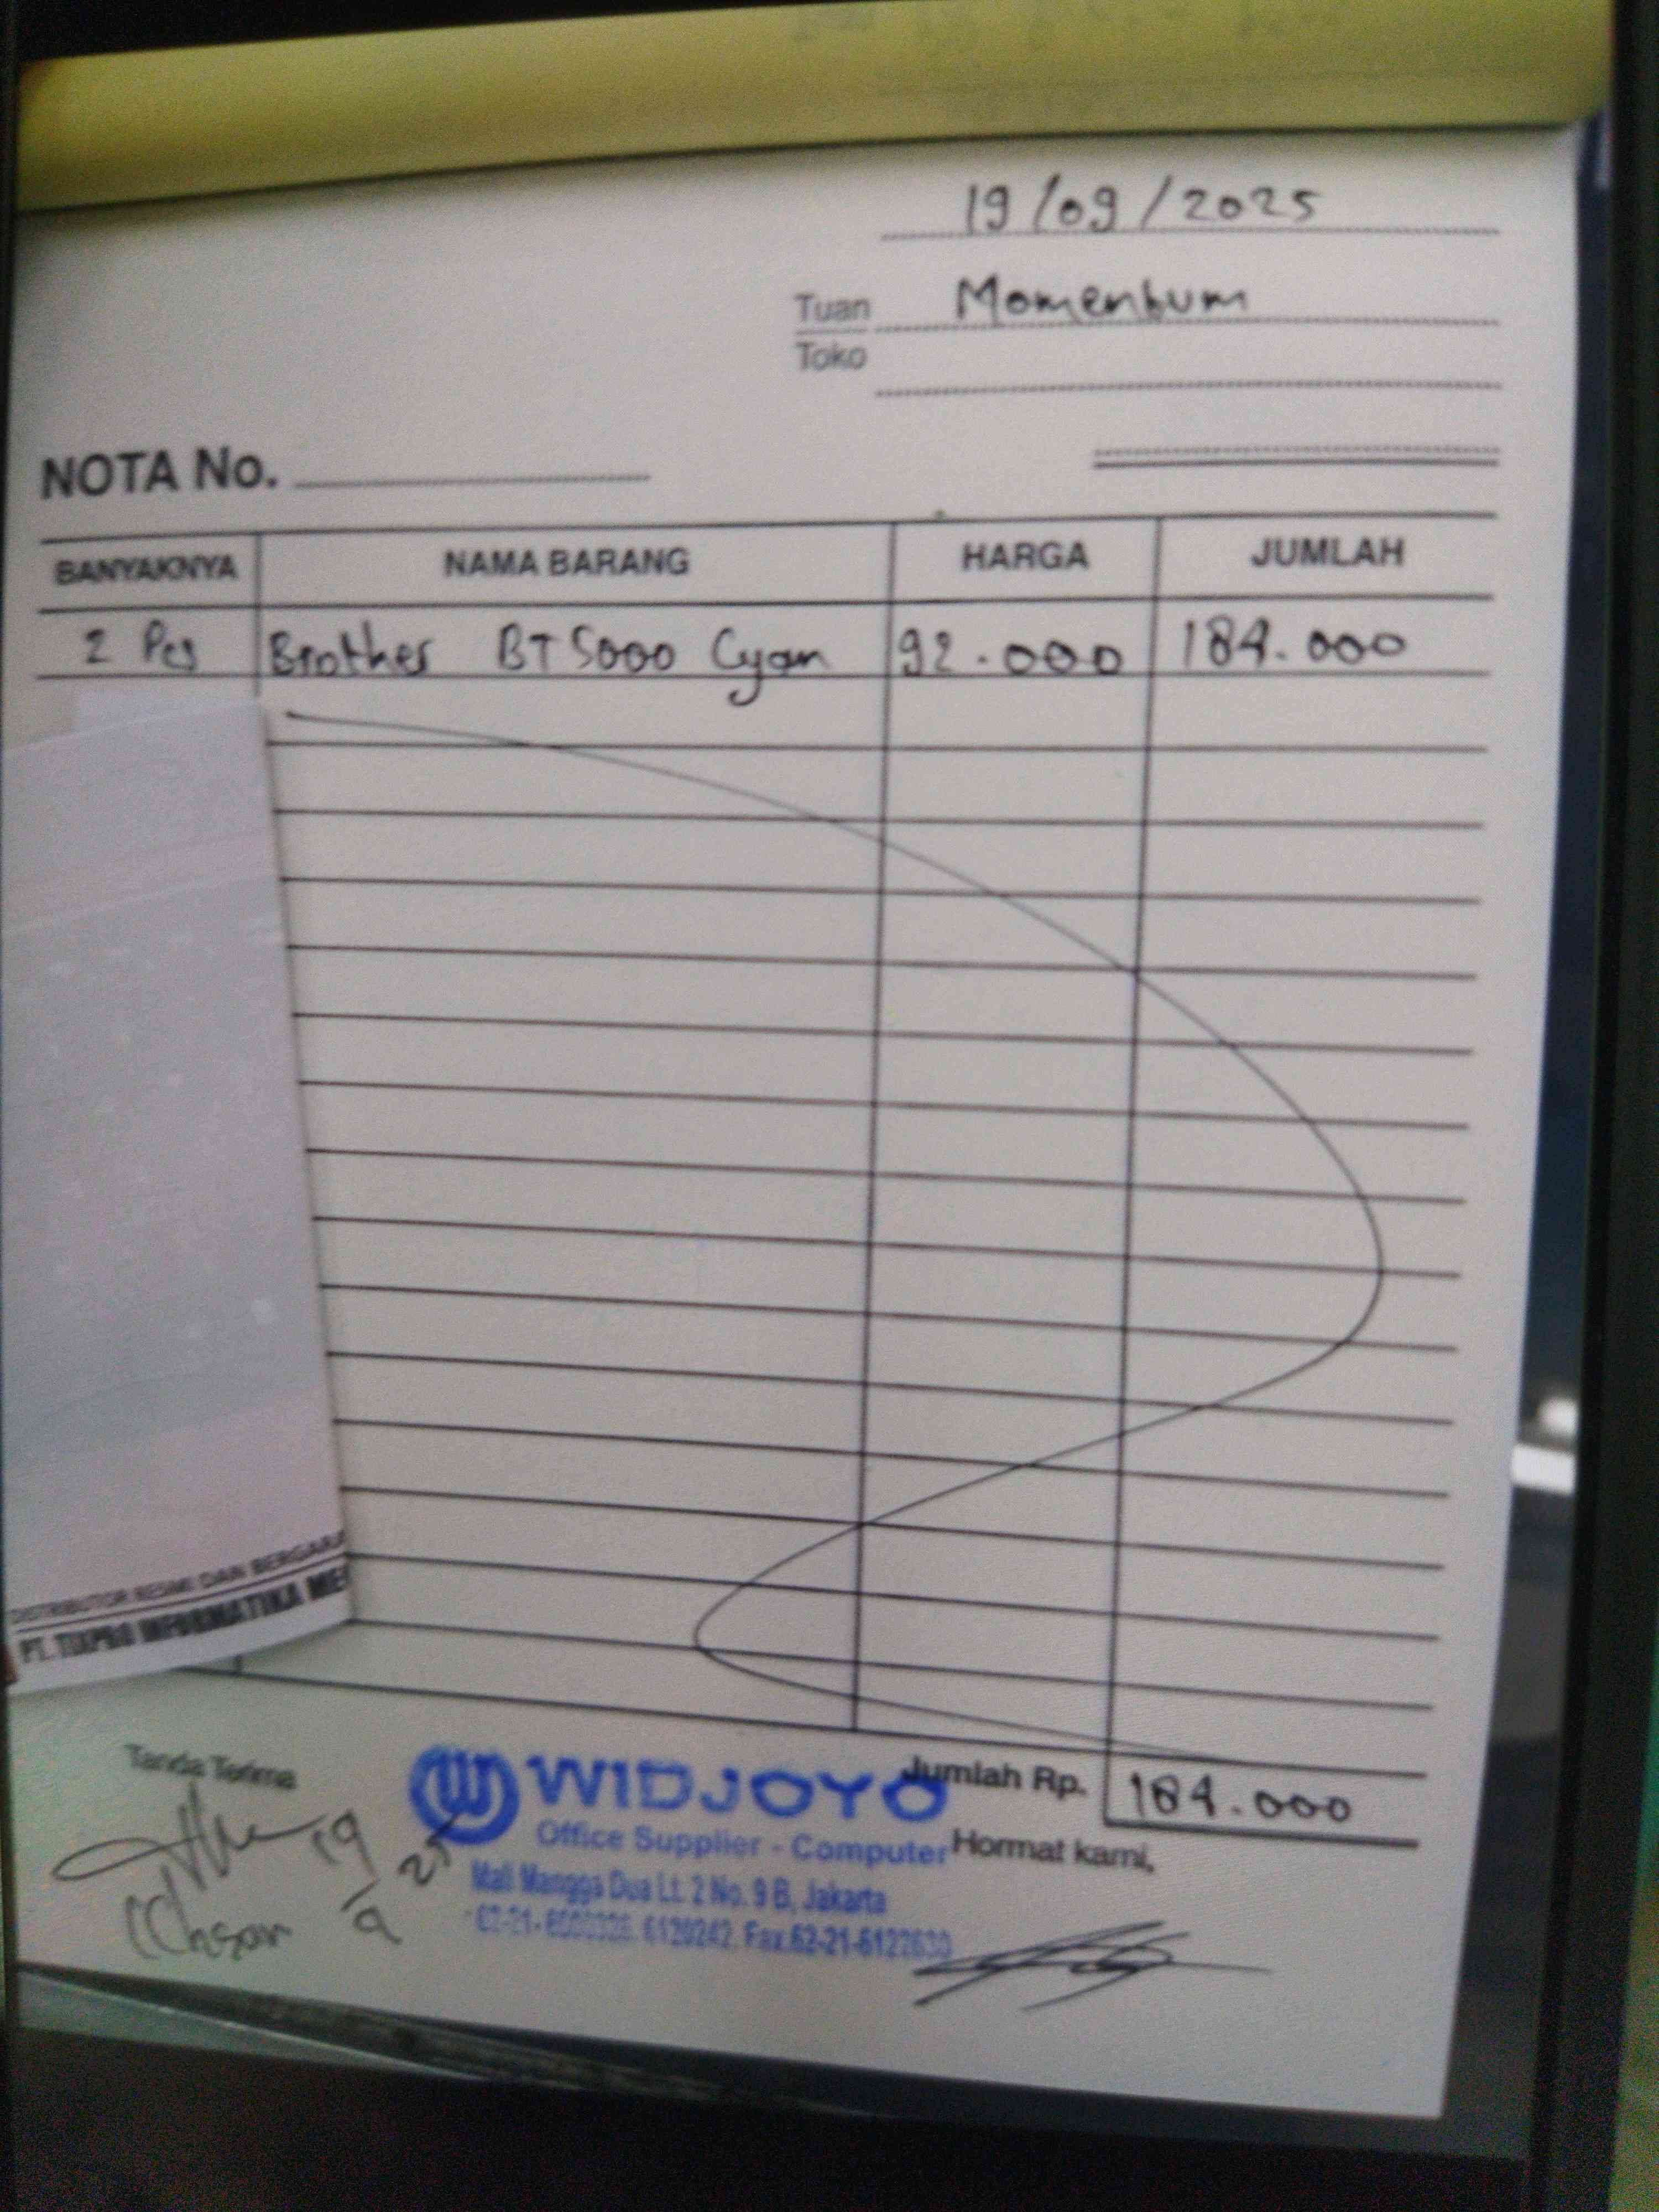 19/09/2025
Tuan Momentum
Toko
NOTA No.
BANYAKNYA NAMA BARANG HARGA JUMLAH
2 Pcs Brother BT5000 Cyan 92.000 184.000
DISTRIBUTOR RESMI DAN BERGARA
PT. TIXPRO INFORMATIKA ME
Jumlah Rp. 184.000
Tanda Terima
WIDJOYO
Office Supplier - Computer
Hormat kami,
Mall Mangga Dua Lt. 2 No. 9 B, Jakarta
6120242. Fax.62-21-6122630
19/9 25